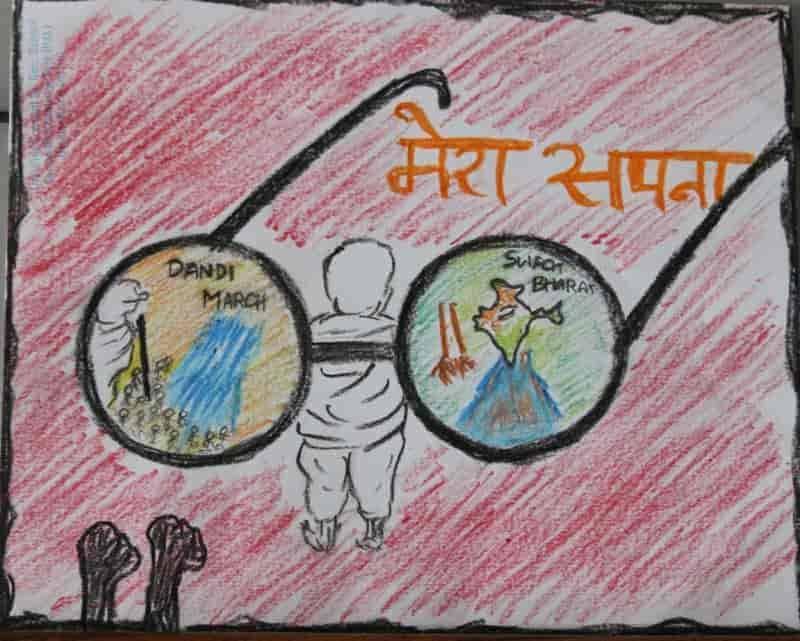 मेरा सपना
DANDI
MARCH
SWACH
BHARAT